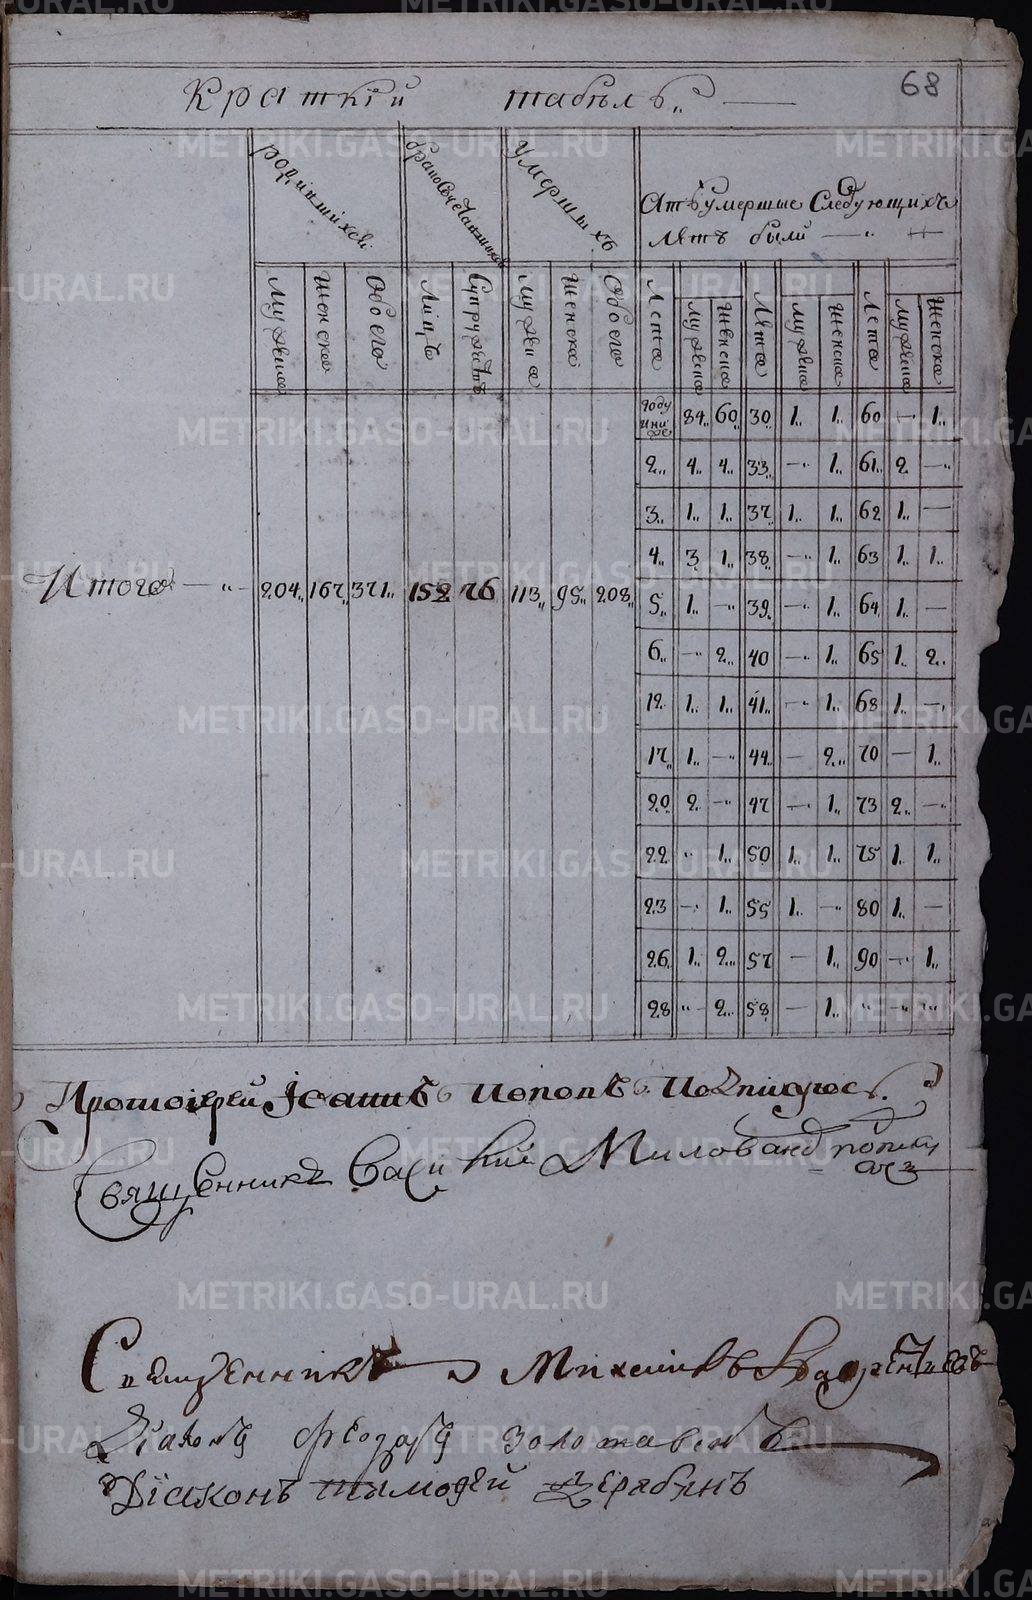 68
Краткїй табѣль
родившихся
браковенчавшихся
умершихъ
Атъ умершие Следующихъ
лѣтъ были
Мужска
Женска
Обоего
Лицъ
Супружѣтъ
Мужска
Женска
Обоего
Лета
мужска
женска
Лѣта
мужска
женска
Лета
мужска
женска
году и ниже 84 60 30 1 1 60 — 1
2 4 4 33 — 1 61 2 —
3 1 1 37 1 1 62 1 —
4 3 1 38 — 1 63 1 1
Итого 204 167 371 152 76 113 95 208
5 1 — 39 — 1 64 1 —
6 — 2 40 — 1 65 1 2
12 1 1 41 — 1 68 1 —
17 1 — 44 — 2 70 — 1
20 2 — 47 — 1 73 2 —
22 „ 1 50 1 1 75 1 1
23 — 1 55 1 — 80 1 —
26 1 2 57 — 1 90 — 1
28 „ 2 58 — 1 „ „ „
Протоіерей Іоаннъ Поповъ
Священникъ Василий Милованов
Священникъ Михаилъ
Діаконъ Ѳеодоръ Золотавинъ
Дїаконъ Тимофей Дерябинъ
METRIKI.GASO-URAL.RU